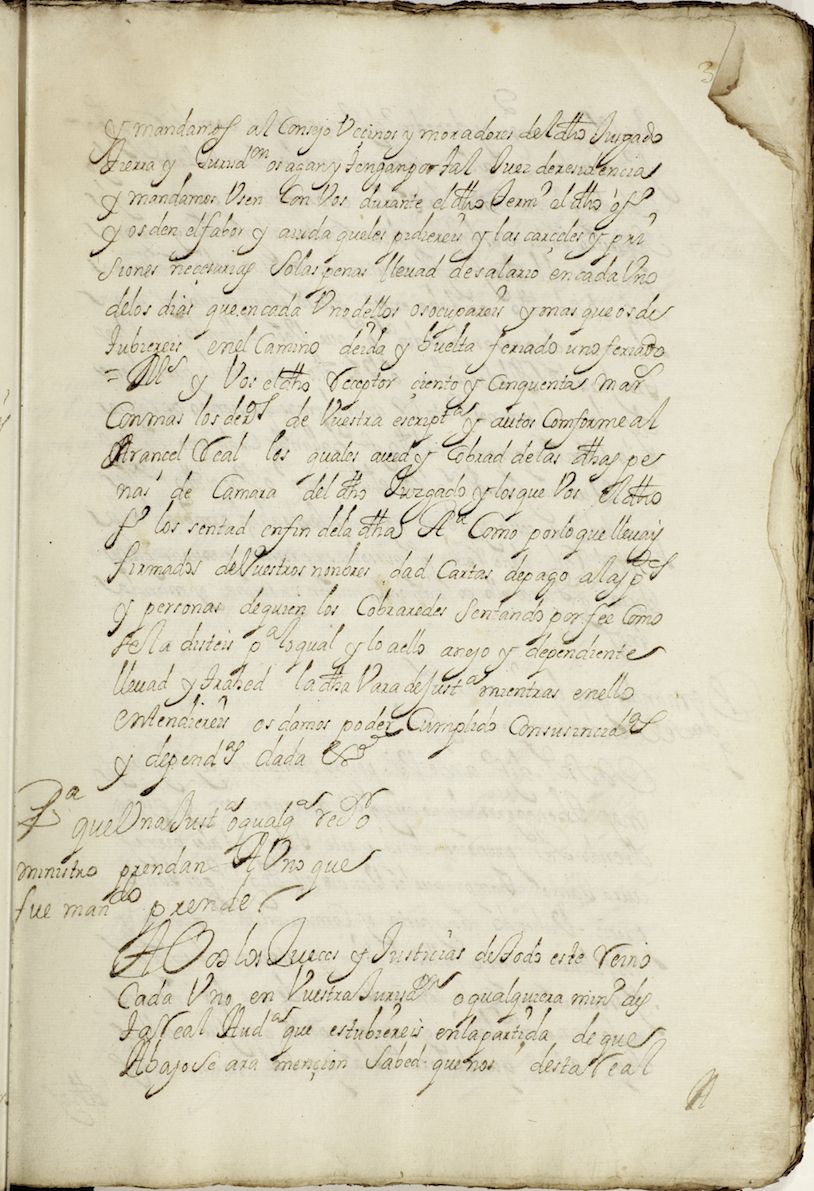 3
y mandamos al Consejo Veçinos y moradores del dho Juzgado
tierra y Jurisdon os agan y tengan por tal Juez de residencia
y mandamos Usen Con Vos durante el dho termo el dho offo
y os den el fabor y aiuda que les pidiereis y las carçeles y pri
siones neçesarias So las penas llevad de salario en cada Uno
de los dias que en cada Uno dellos os ocupareis y mas que os de
tubiereis en el Camino de ida y buelta feriado uno feriado
= Ms y Vos el dho Receptor çiento y Cinquenta mars
Con mas los deros de Vuestra escripta y autos Comforme al
Arancel Real los quales aved y Cobrad de las dhas pe
nas de Camara del dho Juzgado y los que Vos El dho
So los sentad en fin de la dha Ra Como por lo que llevais
firmados de Vuestros nonbres dad Cartas de pago a las ps
y personas de quien los Cobraredes Sentando por fee Como
se la disteis pa lo qual y lo a ello anejo y dependiente
llevad y trahed la dha Vara de Justa mientras en ello
entendiereis os damos poder Cumplido Con sus incidas
y dependas dada &
Pa que Una Justa o qualqa Redor o
ministro prendan A Uno que
fue mando prender
A Todos los Jueces y Justicias de todo este Reino
Cada Uno en Vuestra Jurisdon o qualquiera mino des
ta Real Auda que estubiereis en la partida de que
Abajo Se ara mençion Sabed que nos desta Real
A